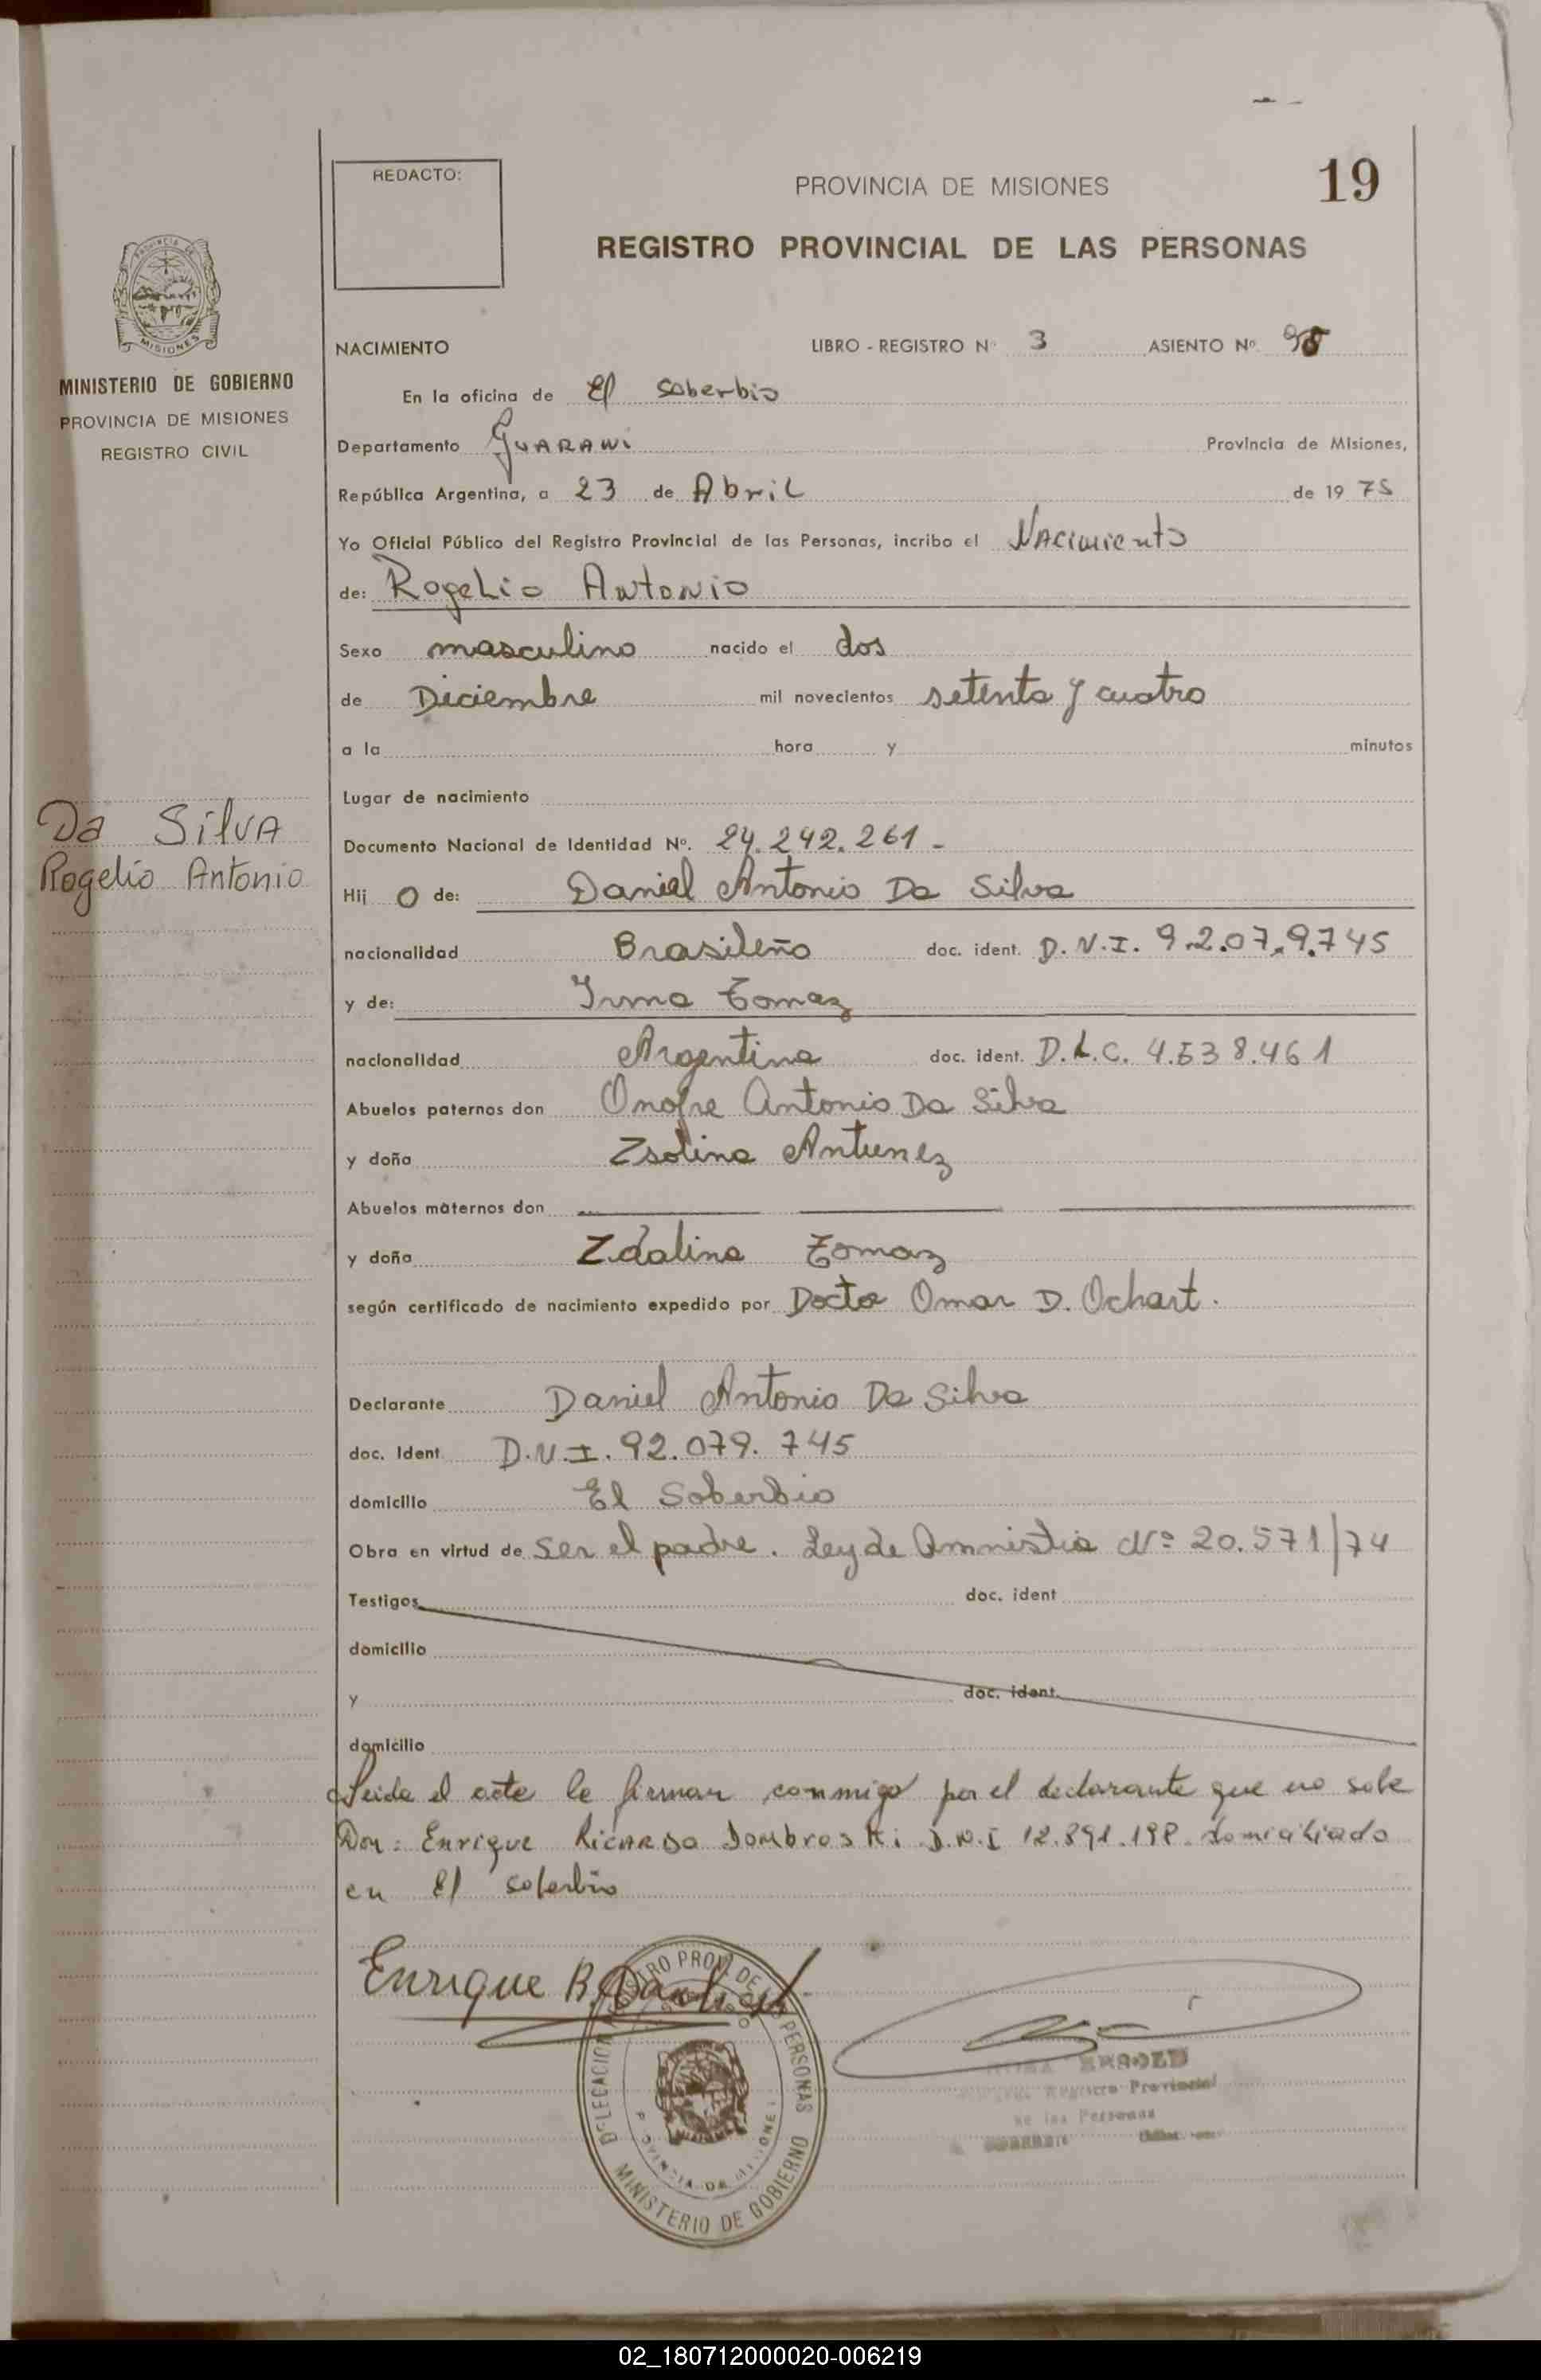 19
REDACTO:
PROVINCIA DE MISIONES
REGISTRO PROVINCIAL DE LAS PERSONAS
MISIONES
MINISTERIO DE GOBIERNO
PROVINCIA DE MISIONES
REGISTRO CIVIL
NACIMIENTO LIBRO - REGISTRO Nº 3 ASIENTO Nº 98
En la oficina de El Soberbio
Departamento Guarani Provincia de Misiones,
República Argentina, a 23 de Abril de 19 75
Yo Oficial Público del Registro Provincial de las Personas, incribo el Nacimiento
de: Rogelio Antonio
Sexo masculino nacido el dos
de Diciembre mil novecientos setenta y cuatro
a la hora y minutos
Lugar de nacimiento
Da Silva
Rogelio Antonio
Documento Nacional de Identidad Nº. 24.242.261-
Hij o de: Daniel Antonio Da Silva
nacionalidad Brasileño doc. ident. D.N.I. 9.2.07.9.745
y de: Irma Tomaz
nacionalidad Argentina doc. ident. D.L.C. 4.538.461
Abuelos paternos don Onofre Antonio Da Silva
y doña Zsolina Antunez
Abuelos maternos don
y doña Zdalina Tomaz
según certificado de nacimiento expedido por Doctor Omar D. Ochart.
Declarante Daniel Antonio Da Silva
doc. Ident D.N.I. 92.079.745
domicilio El Soberbio
Obra en virtud de ser el padre. Ley de Amnistia Nº 20.571/74
Testigos doc. ident
domicilio
y doc. ident.
domicilio
Leida el acta le firman conmigo por el declarante que no sabe
Don: Enrique Ricardo Dombroski D.N.I 12.891.198 domiciliado
en El soberbio
Enrique B.
DELEGACION REGISTRO PROV. DE LAS PERSONAS
PROVINCIA DE MISIONES
MINISTERIO DE GOBIERNO
Registro Provincial
de las Personas
02_180712000020-006219